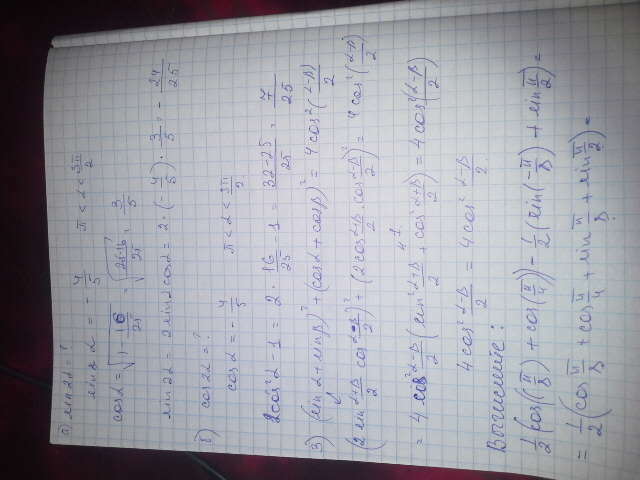 а) sin2α = ?
sin α = - 4/5 π < α < 3π/2
cosα = √(1 - 16/25) = √((25-16)/25) = 3/5
sin2α = 2sinαcosα = 2·(-4/5)·3/5 = - 24/25
б) cos2α = ?
cosα = - 4/5 π < α < 3π/2
2cos²α - 1 = 2·16/25 - 1 = (32-25)/25 = 7/25
3) (sinα + sinβ)² + (cosα + cosβ)² = 4cos²(α-β)/2
(2 sin (α+β)/2 cos (α-β)/2)² + (2cos (α+β)/2 · cos (α-β)/2)² = 4cos²(α-β)/2
= 4 cos² (α-β)/2 (sin² (α+β)/2 + cos² (α+β)/2) = 4cos²(α-β)/2
4cos² (α-β)/2 = 4cos² (α-β)/2
Вычислите:
1/2 (cos(π/8) + cos(π/4)) - 1/2 (sin(-π/8) + sin π/2) =
= 1/2 (cos π/8 + cos π/4 + sin π/8 + sin π/2) =